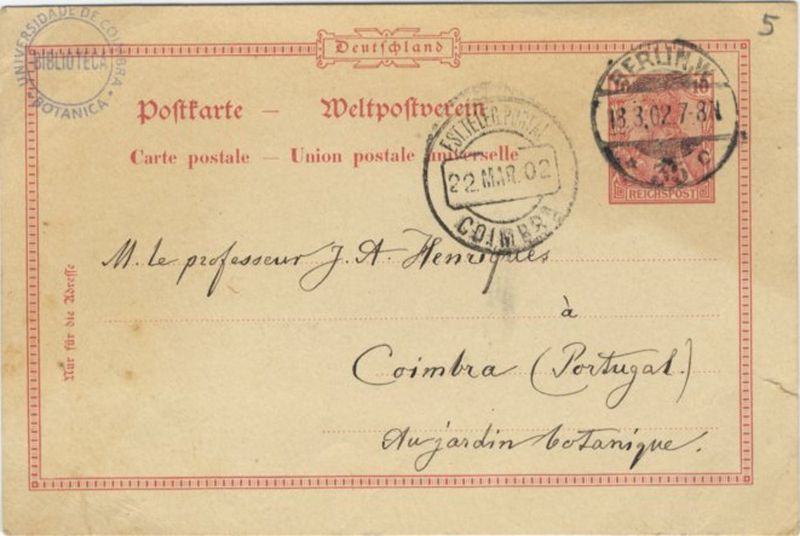 5
UNIVERSIDADE DE COIMBRA
BIBLIOTECA
BOTANICA
Deutschland
Postkarte — Weltpostverein
Carte postale — Union postale universelle
BERLIN.W.
18.3.02.7-8N
10 10
REICHSPOST
22.MAR.02
COIMBRA
Nur für die Adresse
M. le professeur J. A. Henriques
à
Coimbra (Portugal.)
Au jardin botanique.